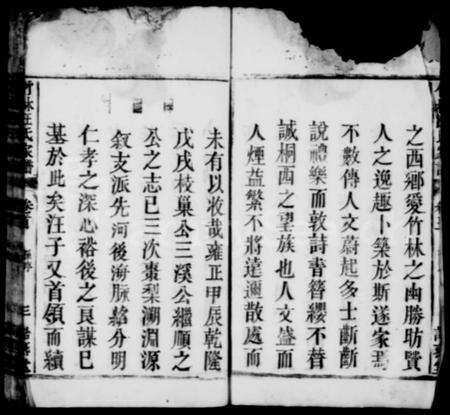 之西鄉愛竹林之幽勝昉賢
人之逸趣卜築於斯遂家焉
不數傳人文蔚起多士斷斷
說禮樂而敦詩書簪纓不替
誠桐西之望族也人文盛而
人煙益繁不將達邇散處而
未有以收哉雍正甲辰乾隆
戊戌枝巢公三溪公繼順之
公之志已三次棗梨溯淵源
叙支派先河後海脈絡分明
仁孝之深心裕後之良謀已
基於此矣汪子又首領而續
竹林汪氏宗譜